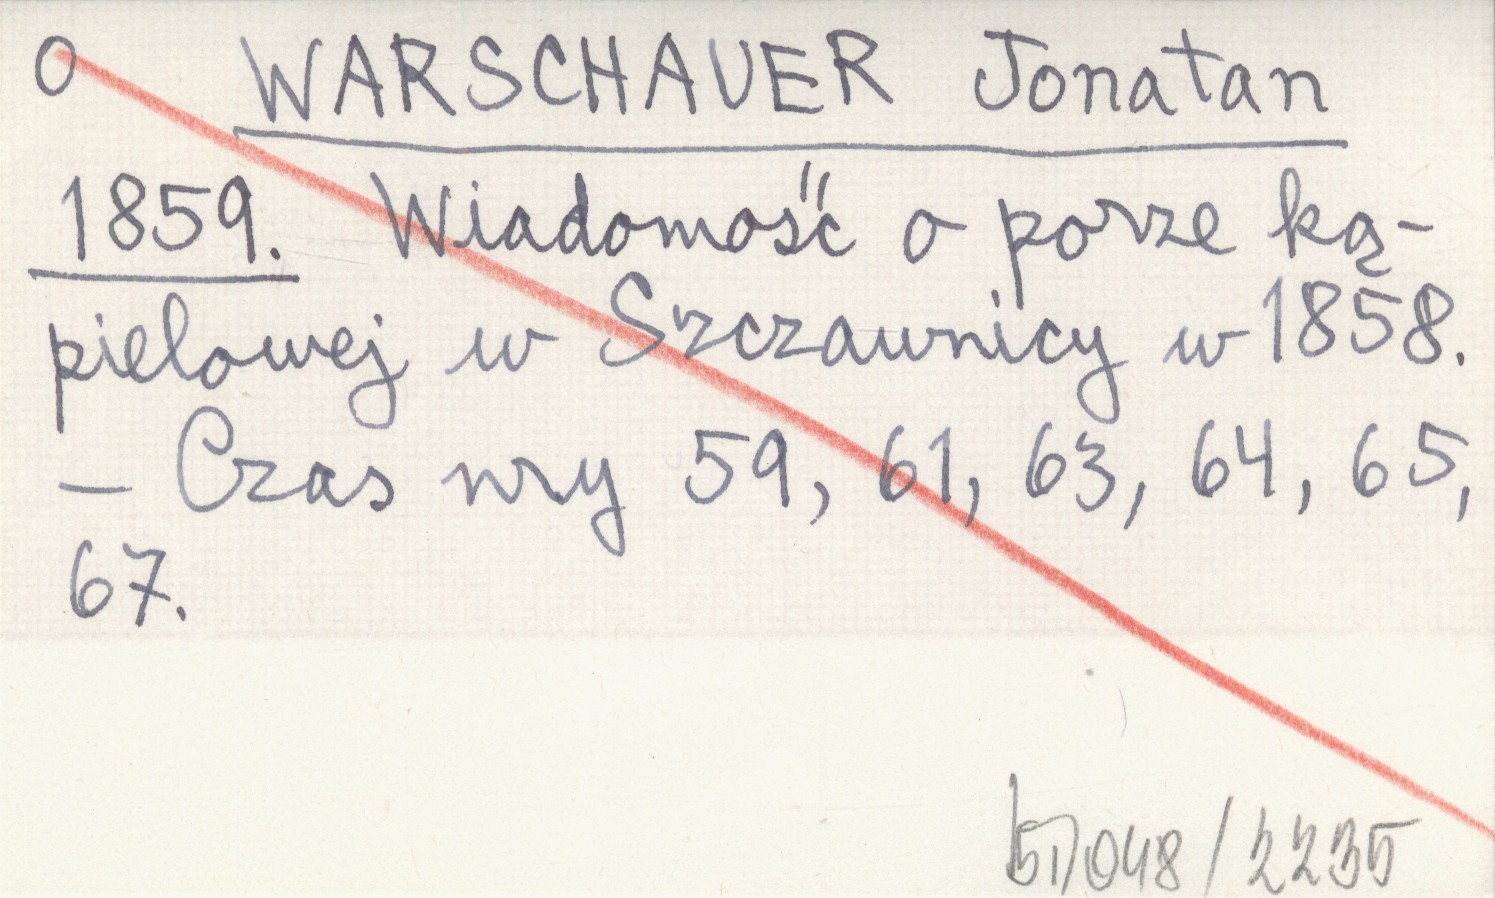 O WARSCHAUER Jonatan
1859. Wiadomość o porze ką-
pielowej w Szczawnicy w 1858.
– Czas nry 59, 61, 63, 64, 65,
67.
/2235